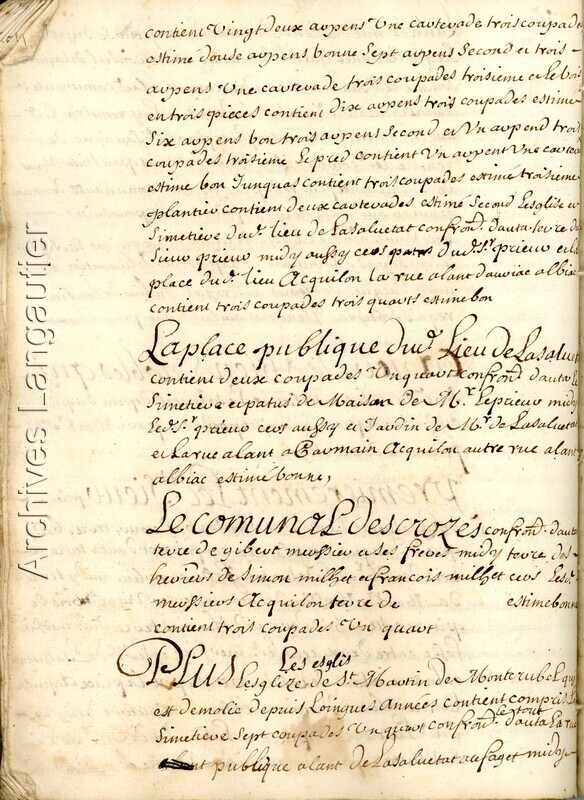 contient vingt deux arpens une cartevade trois coupades
estime douse arpens bonne sept arpens second et trois
arpens une cartevade trois coupades troisieme et le bois
en trois pieces contient dix arpens trois coupades estime
six arpens bon trois arpens second et un arpend trois
coupades troisieme le pred contient un arpent une
estime bon Junquas contient trois coupades estime troisieme
plantier contient deux cartevades estime second Lesglise et
simetiere dud. lieu de Lasaluetat confrond. dauta terre de
sieur prieur midy aussy cers patus dud. sr. prieur et la
place dud. lieu Acquilon la rue alant dauriac albiac
contient trois coupades trois quarts estime bon
La place publique dud. Lieu de Lasaluetat
contient deux coupades un quart confrond. dauta le
simetiere et patus de Maison de Mr. Le prieur midy
led. sr. prieur cers aussy et Jardin de Mr. de Lasaluetat
et La rue alant a Caraman Acquilon autre rue alant
albiac estime bonne,
Le comunal des crozes confrond. dauta
terre de gibert messier et ses freres midy terre des
heritiers de simon milhet et francois milhet cers Les
messiers Acquilon terre de estime bonne
contient trois coupades un quart
Les esglis
Plus Lesglize de st. Martin de Monterubel qui
est demolie depuis Loingues Années contient compris Le
simetiere sept coupades un quart confrond. le tout dauta La rue
publique alant de Lasaluetat au faget midy
Archives Langautier